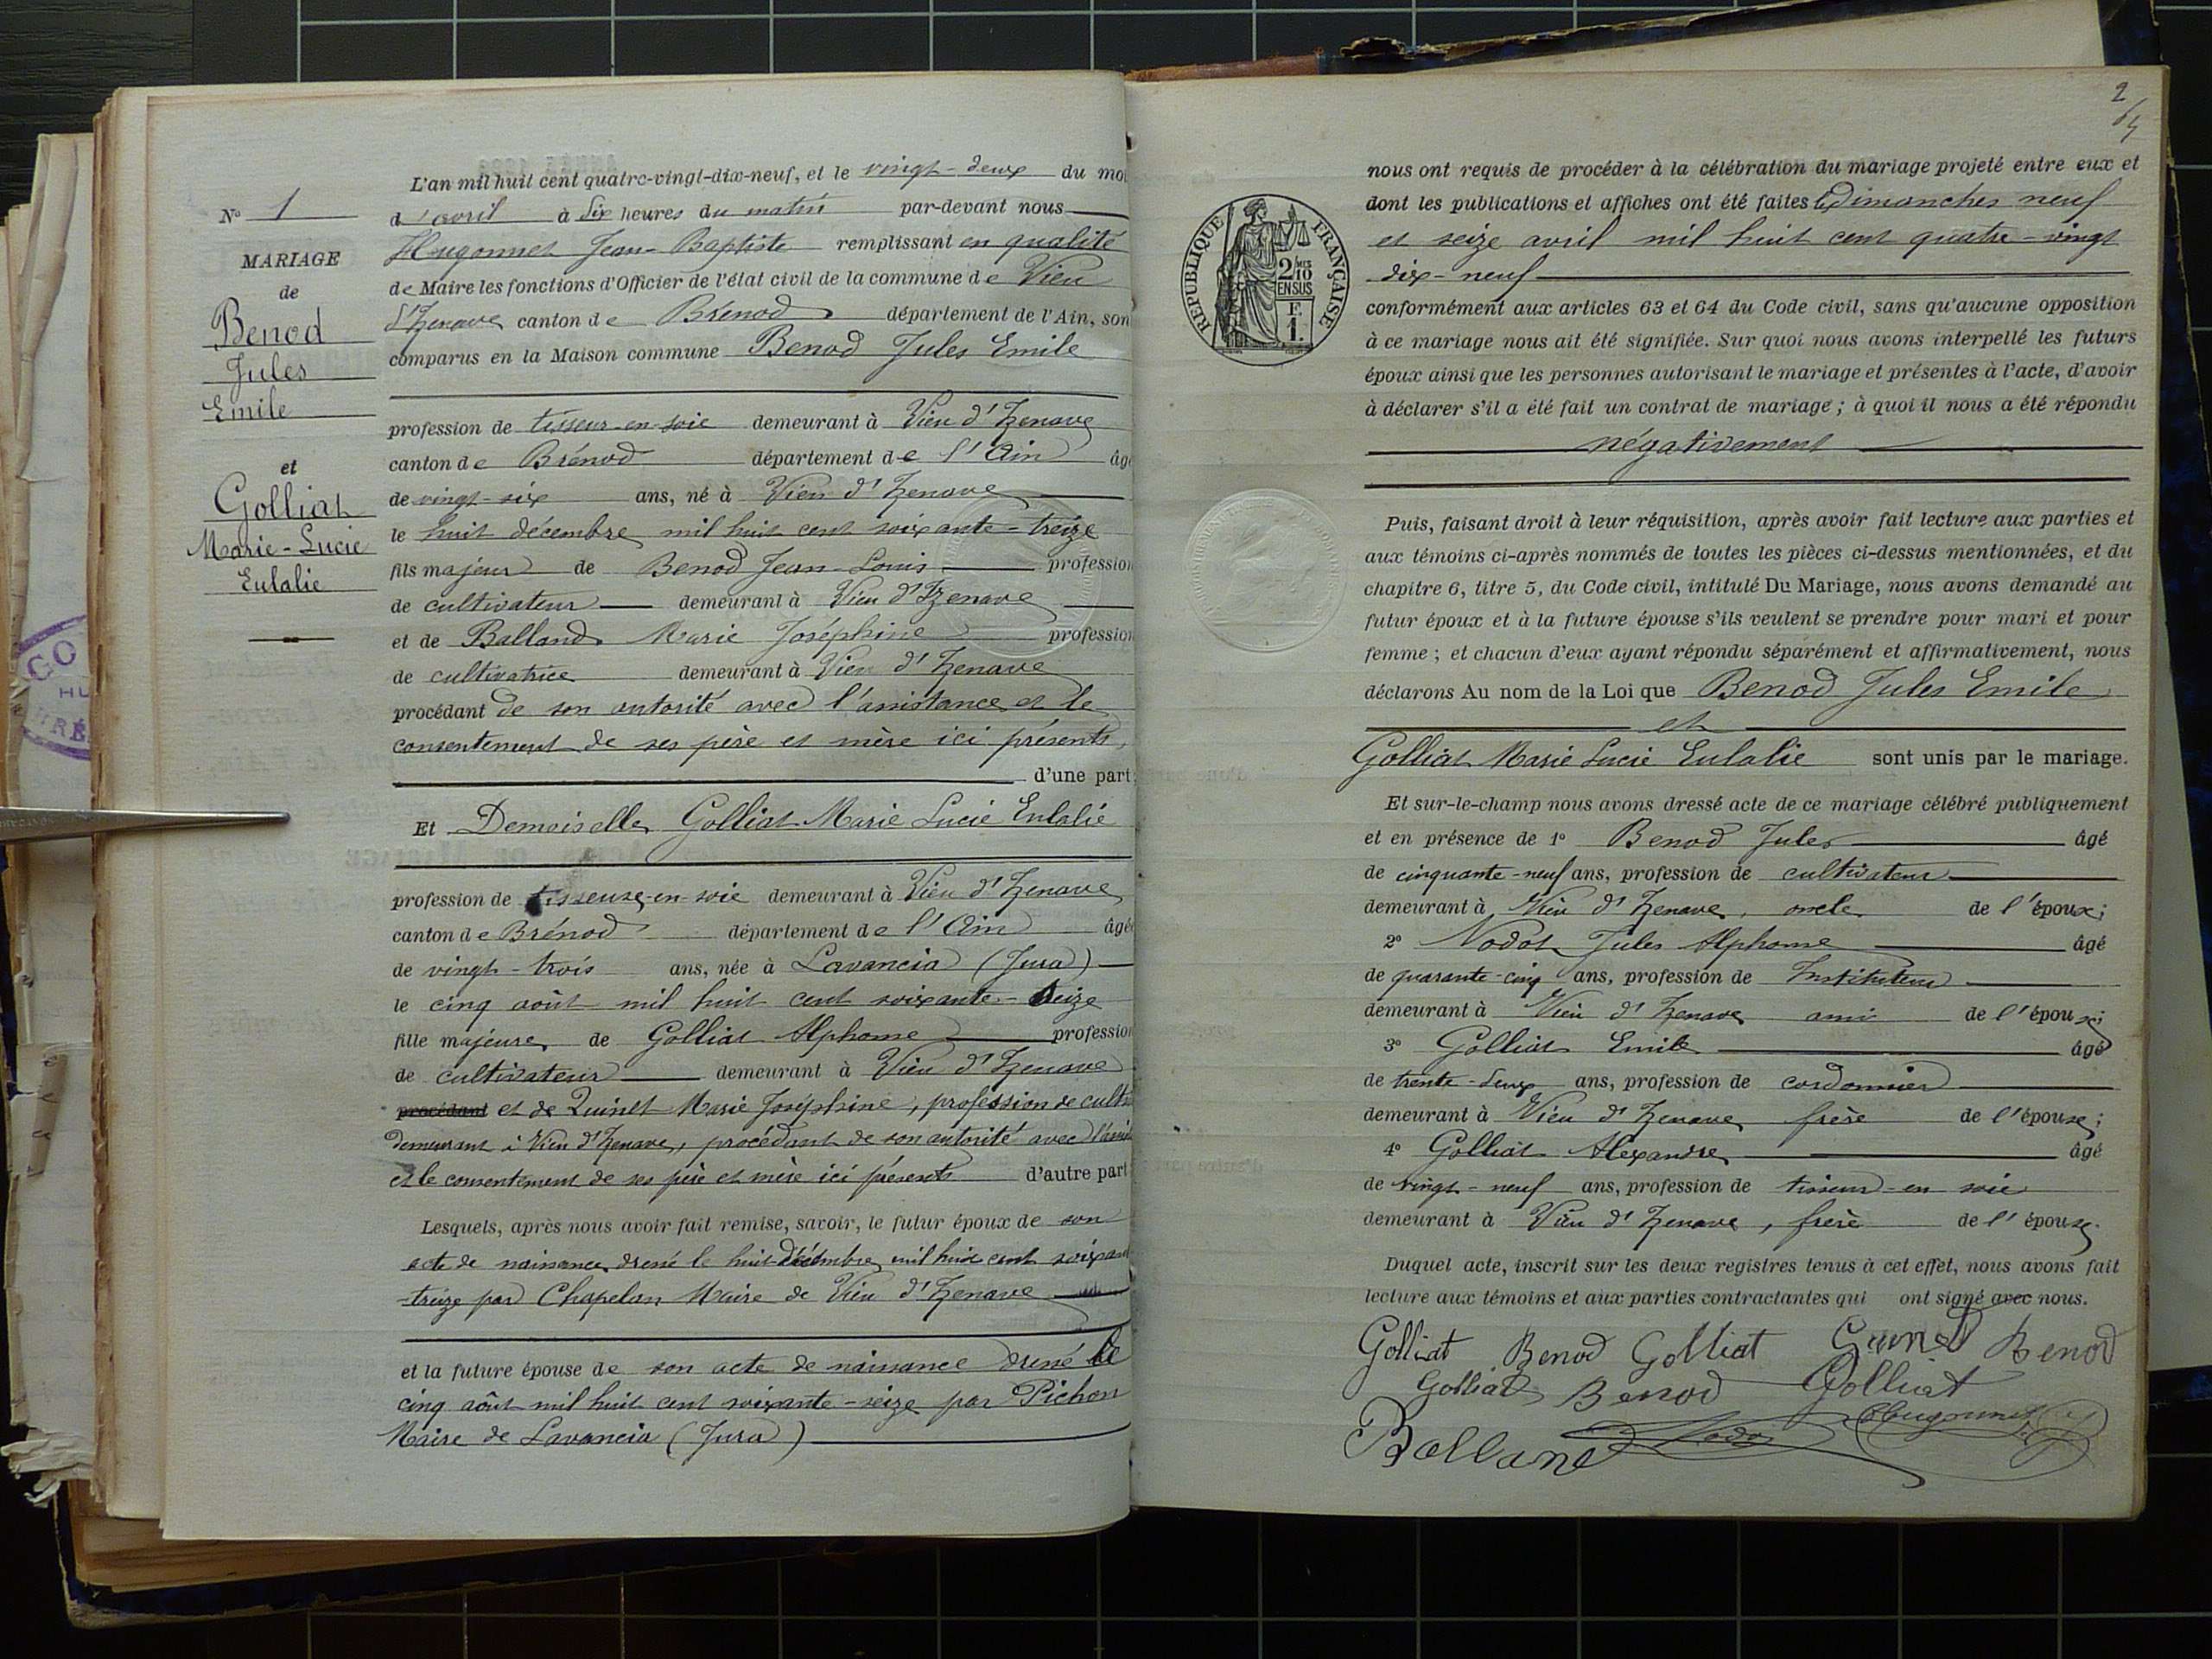 N° 1
MARIAGE
de
Benod
Jules
Emile
et
Golliat
Marie-Lucie
Eulalie
L'an mil huit cent quatre-vingt-dix-neuf, et le vingt-deux du moi
d'avril à Six heures du matin par-devant nous
Hugonnet Jean-Baptiste remplissant en qualité
de Maire les fonctions d'Officier de l'état civil de la commune de Vieu
d'Izenave canton de Brénod département de l'Ain, son
comparus en la Maison commune Benod Jules Emile
profession de tisseur-en-soie demeurant à Vieu d'Izenave
canton de Brénod département de l'Ain âgé
de vingt-six ans, né à Vieu d'Izenave
le huit décembre mil huit cent soixante-treize
fils majeur de Benod Jean-Louis profession
de cultivateur demeurant à Vieu d'Izenave
et de Balland Marie Joséphine profession
de cultivatrice demeurant à Vieu d'Izenave
procédant de son autorité avec l'assistance et le
consentement de ses père et mère ici présents,
d'une part;
Et Demoiselle Golliat Marie Lucie Eulalie
profession de tisseuse-en-soie demeurant à Vieu d'Izenave
canton de Brénod département de l'Ain âgée
de vingt-trois ans, née à Lavancia (Jura)
le cinq août mil huit cent soixante-seize
fille majeure de Golliat Alphonse profession
de cultivateur demeurant à Vieu d'Izenave
procédant et de Quinet Marie Joséphine, profession de culti
demeurant à Vieu d'Izenave, procédant de son autorité avec l'assis
et le consentement de ses père et mère ici présents d'autre part
Lesquels, après nous avoir fait remise, savoir, le futur époux de son
acte de naissance dressé le huit décembre mil huit cent soixan
-treize par Chapelan Maire de Vieu d'Izenave
et la future épouse de son acte de naissance dressé le
cinq août mil huit cent soixante-seize par Pichon
Maire de Lavancia (Jura)
2
nous ont requis de procéder à la célébration du mariage projeté entre eux et
dont les publications et affiches ont été faites Dimanches neuf
et seize avril mil huit cent quatre-vingt
dix-neuf
conformément aux articles 63 et 64 du Code civil, sans qu'aucune opposition
à ce mariage nous ait été signifiée. Sur quoi nous avons interpellé les futurs
époux ainsi que les personnes autorisant le mariage et présentes à l'acte, d'avoir
à déclarer s'il a été fait un contrat de mariage ; à quoi il nous a été répondu
négativement
Puis, faisant droit à leur réquisition, après avoir fait lecture aux parties et
aux témoins ci-après nommés de toutes les pièces ci-dessus mentionnées, et du
chapitre 6, titre 5, du Code civil, intitulé Du Mariage, nous avons demandé au
futur époux et à la future épouse s'ils veulent se prendre pour mari et pour
femme ; et chacun d'eux ayant répondu séparément et affirmativement, nous
déclarons Au nom de la Loi que Benod Jules Emile
et
Golliat Marie Lucie Eulalie sont unis par le mariage.
Et sur-le-champ nous avons dressé acte de ce mariage célébré publiquement
et en présence de 1° Benod Jules âgé
de cinquante-neuf ans, profession de cultivateur
demeurant à Vieu d'Izenave, oncle de l'époux;
2° Nodot Jules Alphonse âgé
de quarante-cinq ans, profession de Instituteur
demeurant à Vieu d'Izenave ami de l'époux;
3° Golliat Emile âgé
de trente-deux ans, profession de cordonnier
demeurant à Vieu d'Izenave frère de l'épouse;
4° Golliat Alexandre âgé
de vingt-neuf ans, profession de tisseur-en soie
demeurant à Vieu d'Izenave, frère de l'épouse.
Duquel acte, inscrit sur les deux registres tenus à cet effet, nous avons fait
lecture aux témoins et aux parties contractantes qui ont signé avec nous.
Golliat Benod Golliat Benod
Golliat Benod Golliat
Balland Nodot Hugonnet
RÉPUBLIQUE FRANÇAISE
2/10
EN SUS
F.
1.